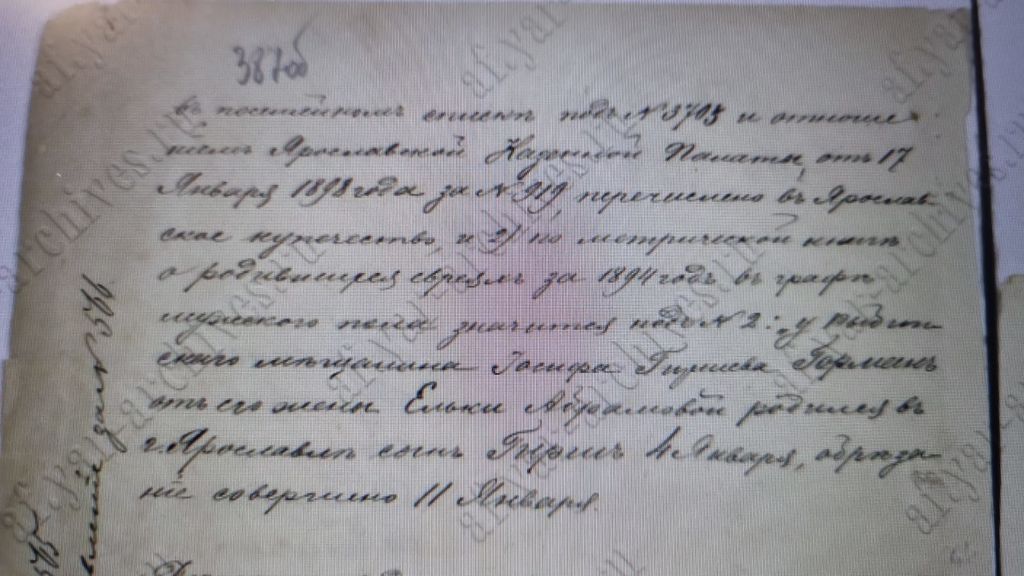 387об
въ посемейномъ спискѣ подъ № 3705 и отноше-
ніемъ Ярославской Казенной Палаты, отъ 17
Января 1898 года за № 919, перечислено въ Ярослав-
ское купечество, и 2) по метрической книгѣ
о родившихся евреяхъ за 1894 годъ въ графѣ
мужского пола значится подъ № 2: „у Рыбин-
скаго мѣщанина Іосифа Гиршева Горманъ
отъ его жены Ельки Абрамовой родился въ
г. Ярославлѣ сынъ Гиршъ 4 Января, обрѣза-
ніе совершено 11 Января.